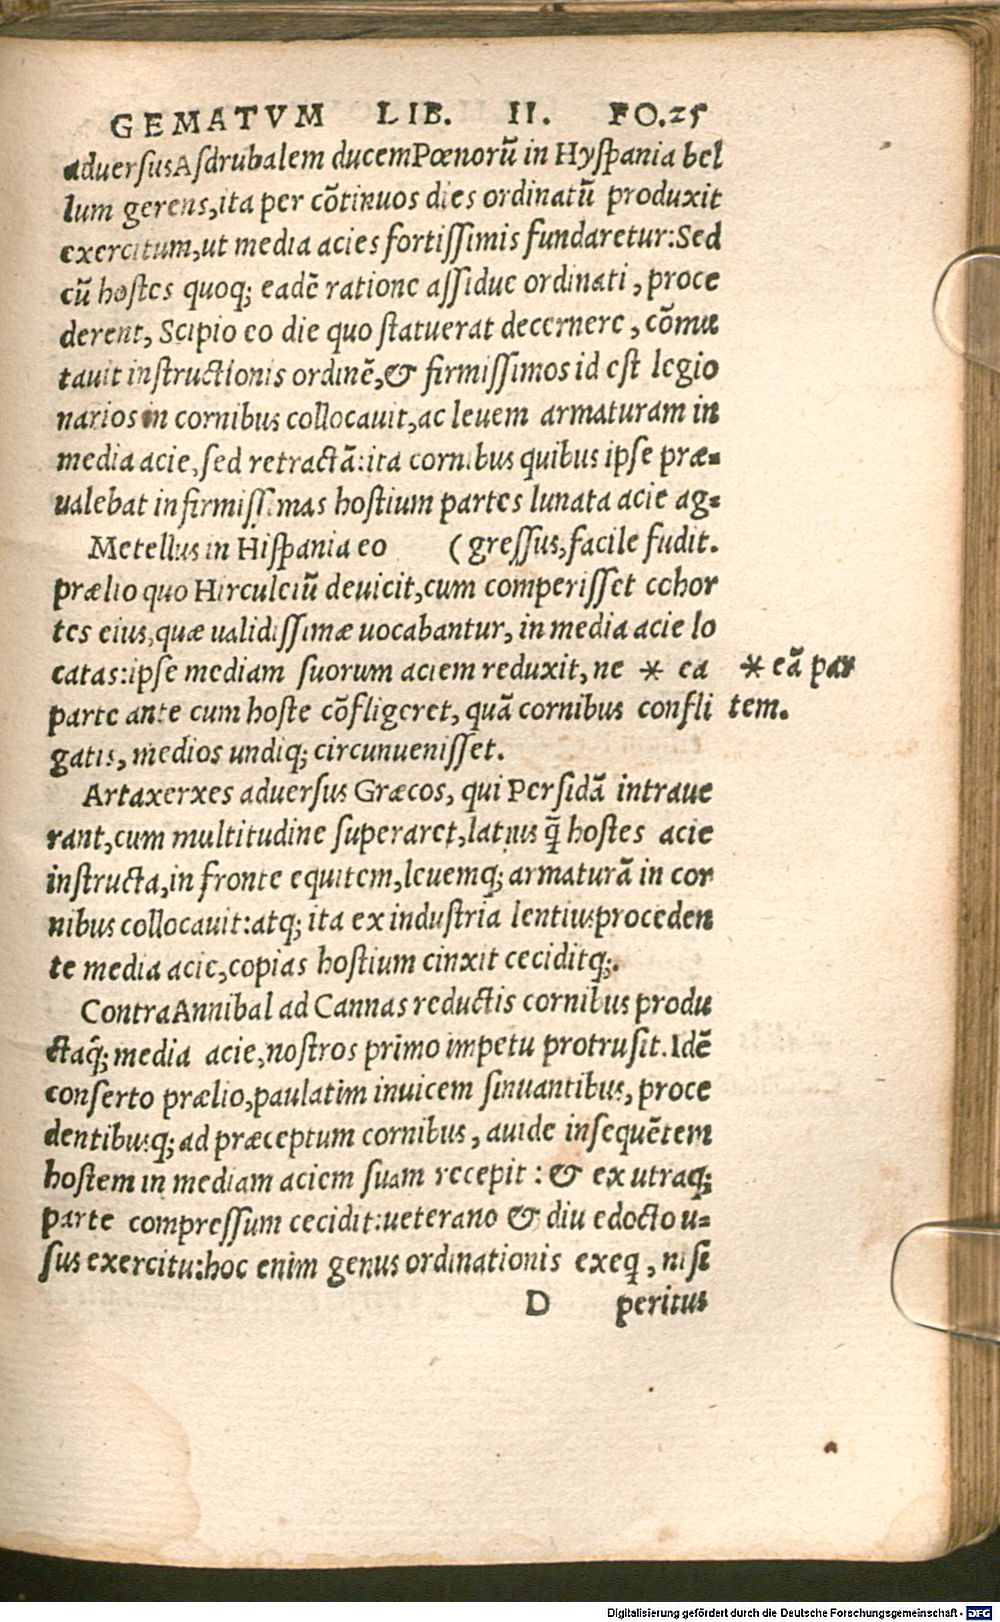 GEMATVM LIB. II. FO.25
aduersus Asdrubalem ducem Pœnorũ in Hyspania bel
lum gerens, ita per cõtinuos dies ordinatũ produxit
exercitum, ut media acies fortissimis fundaretur: Sed
cũ hostes quoq; eadẽ ratione assidue ordinati, proce
derent, Scipio eo die quo statuerat decernere, cõmu
tauit instructionis ordinẽ, & firmissimos id est legio
narios in cornibus collocauit, ac leuem armaturam in
media acie, sed retractã: ita cornibus quibus ipse præ=
ualebat in firmissimas hostium partes lunata acie ag=
Metellus in Hispania eo (gressus, facile fudit.
prælio quo Hirculeiũ deuicit, cum comperisset cohor
tes eius, quæ ualidissimæ uocabantur, in media acie lo
catas: ipse mediam suorum aciem reduxit, ne * ea
* eã par
parte ante cum hoste cõfligeret, quã cornibus confli
tem.
gatis, medios undiq; circunuenisset.
Artaxerxes aduersus Græcos, qui Persidã intraue
rant, cum multitudine superaret, latius q̃ hostes acie
instructa, in fronte equitem, leuemq; armaturã in cor
nibus collocauit: atq; ita ex industria lentius proceden
te media acie, copias hostium cinxit ceciditq;.
Contra Annibal ad Cannas reductis cornibus produ
ctaq̃; media acie, nostros primo impetu protrusit. Idẽ
conserto prælio, paulatim inuicem sinuantibus, proce
dentibusq; ad præceptum cornibus, auide insequẽtem
hostem in mediam aciem suam recepit: & ex utraq;
parte compressum cecidit: ueterano & diu edocto u=
sus exercitu: hoc enim genus ordinationis exeq, nisi
D peritus
Digitalisierung gefördert durch die Deutsche Forschungsgemeinschaft - DFG